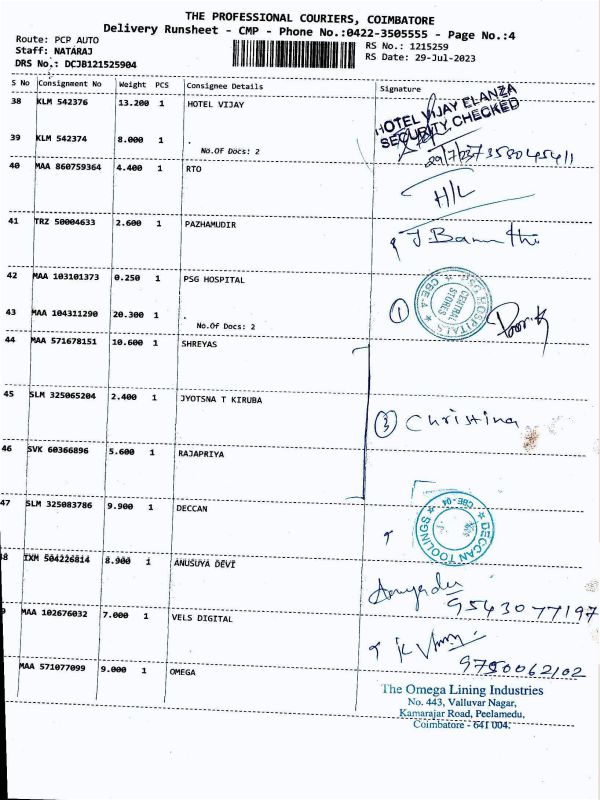 THE PROFESSIONAL COURIERS, COIMBATORE
Delivery Runsheet - CMP - Phone No.:0422-3505555 - Page No.:4
Route: PCP AUTO
Staff: NATARAJ
DRS No.: DCJB121525904
RS No.: 1215259
RS Date: 29-Jul-2023
S No Consignment No Weight PCS Consignee Details Signature
38 KLM 542376 13.200 1 HOTEL VIJAY
HOTEL VIJAY ELANZA
SECURITY CHECKED
39 KLM 542374 8.000 1 .
No.Of Docs: 2
40 MAA 860759364 4.400 1 RTO
H/L
41 TRZ 50004633 2.600 1 PAZHAMUDIR
42 MAA 103101373 0.250 1 PSG HOSPITAL
PSG HOSPITALS
CENTRAL STORES
CBE-4
1
43 MAA 104311290 20.300 1 .
No.Of Docs: 2
44 MAA 571678151 10.600 1 SHREYAS
45 SLM 325065204 2.400 1 JYOTSNA T KIRUBA
3 Christina
46 SVK 60366896 5.600 1 RAJAPRIYA
47 SLM 325083786 9.900 1 DECCAN
DECCAN TOOLINGS
CBE-04
48 IXM 504226814 8.900 1 ANUSUYA DEVI
9543077197
9 MAA 102676032 7.000 1 VELS DIGITAL
MAA 571077099 9.000 1 OMEGA
The Omega Lining Industries
No. 443, Valluvar Nagar,
Kamarajar Road, Peelamedu,
Coimbatore - 641 004.